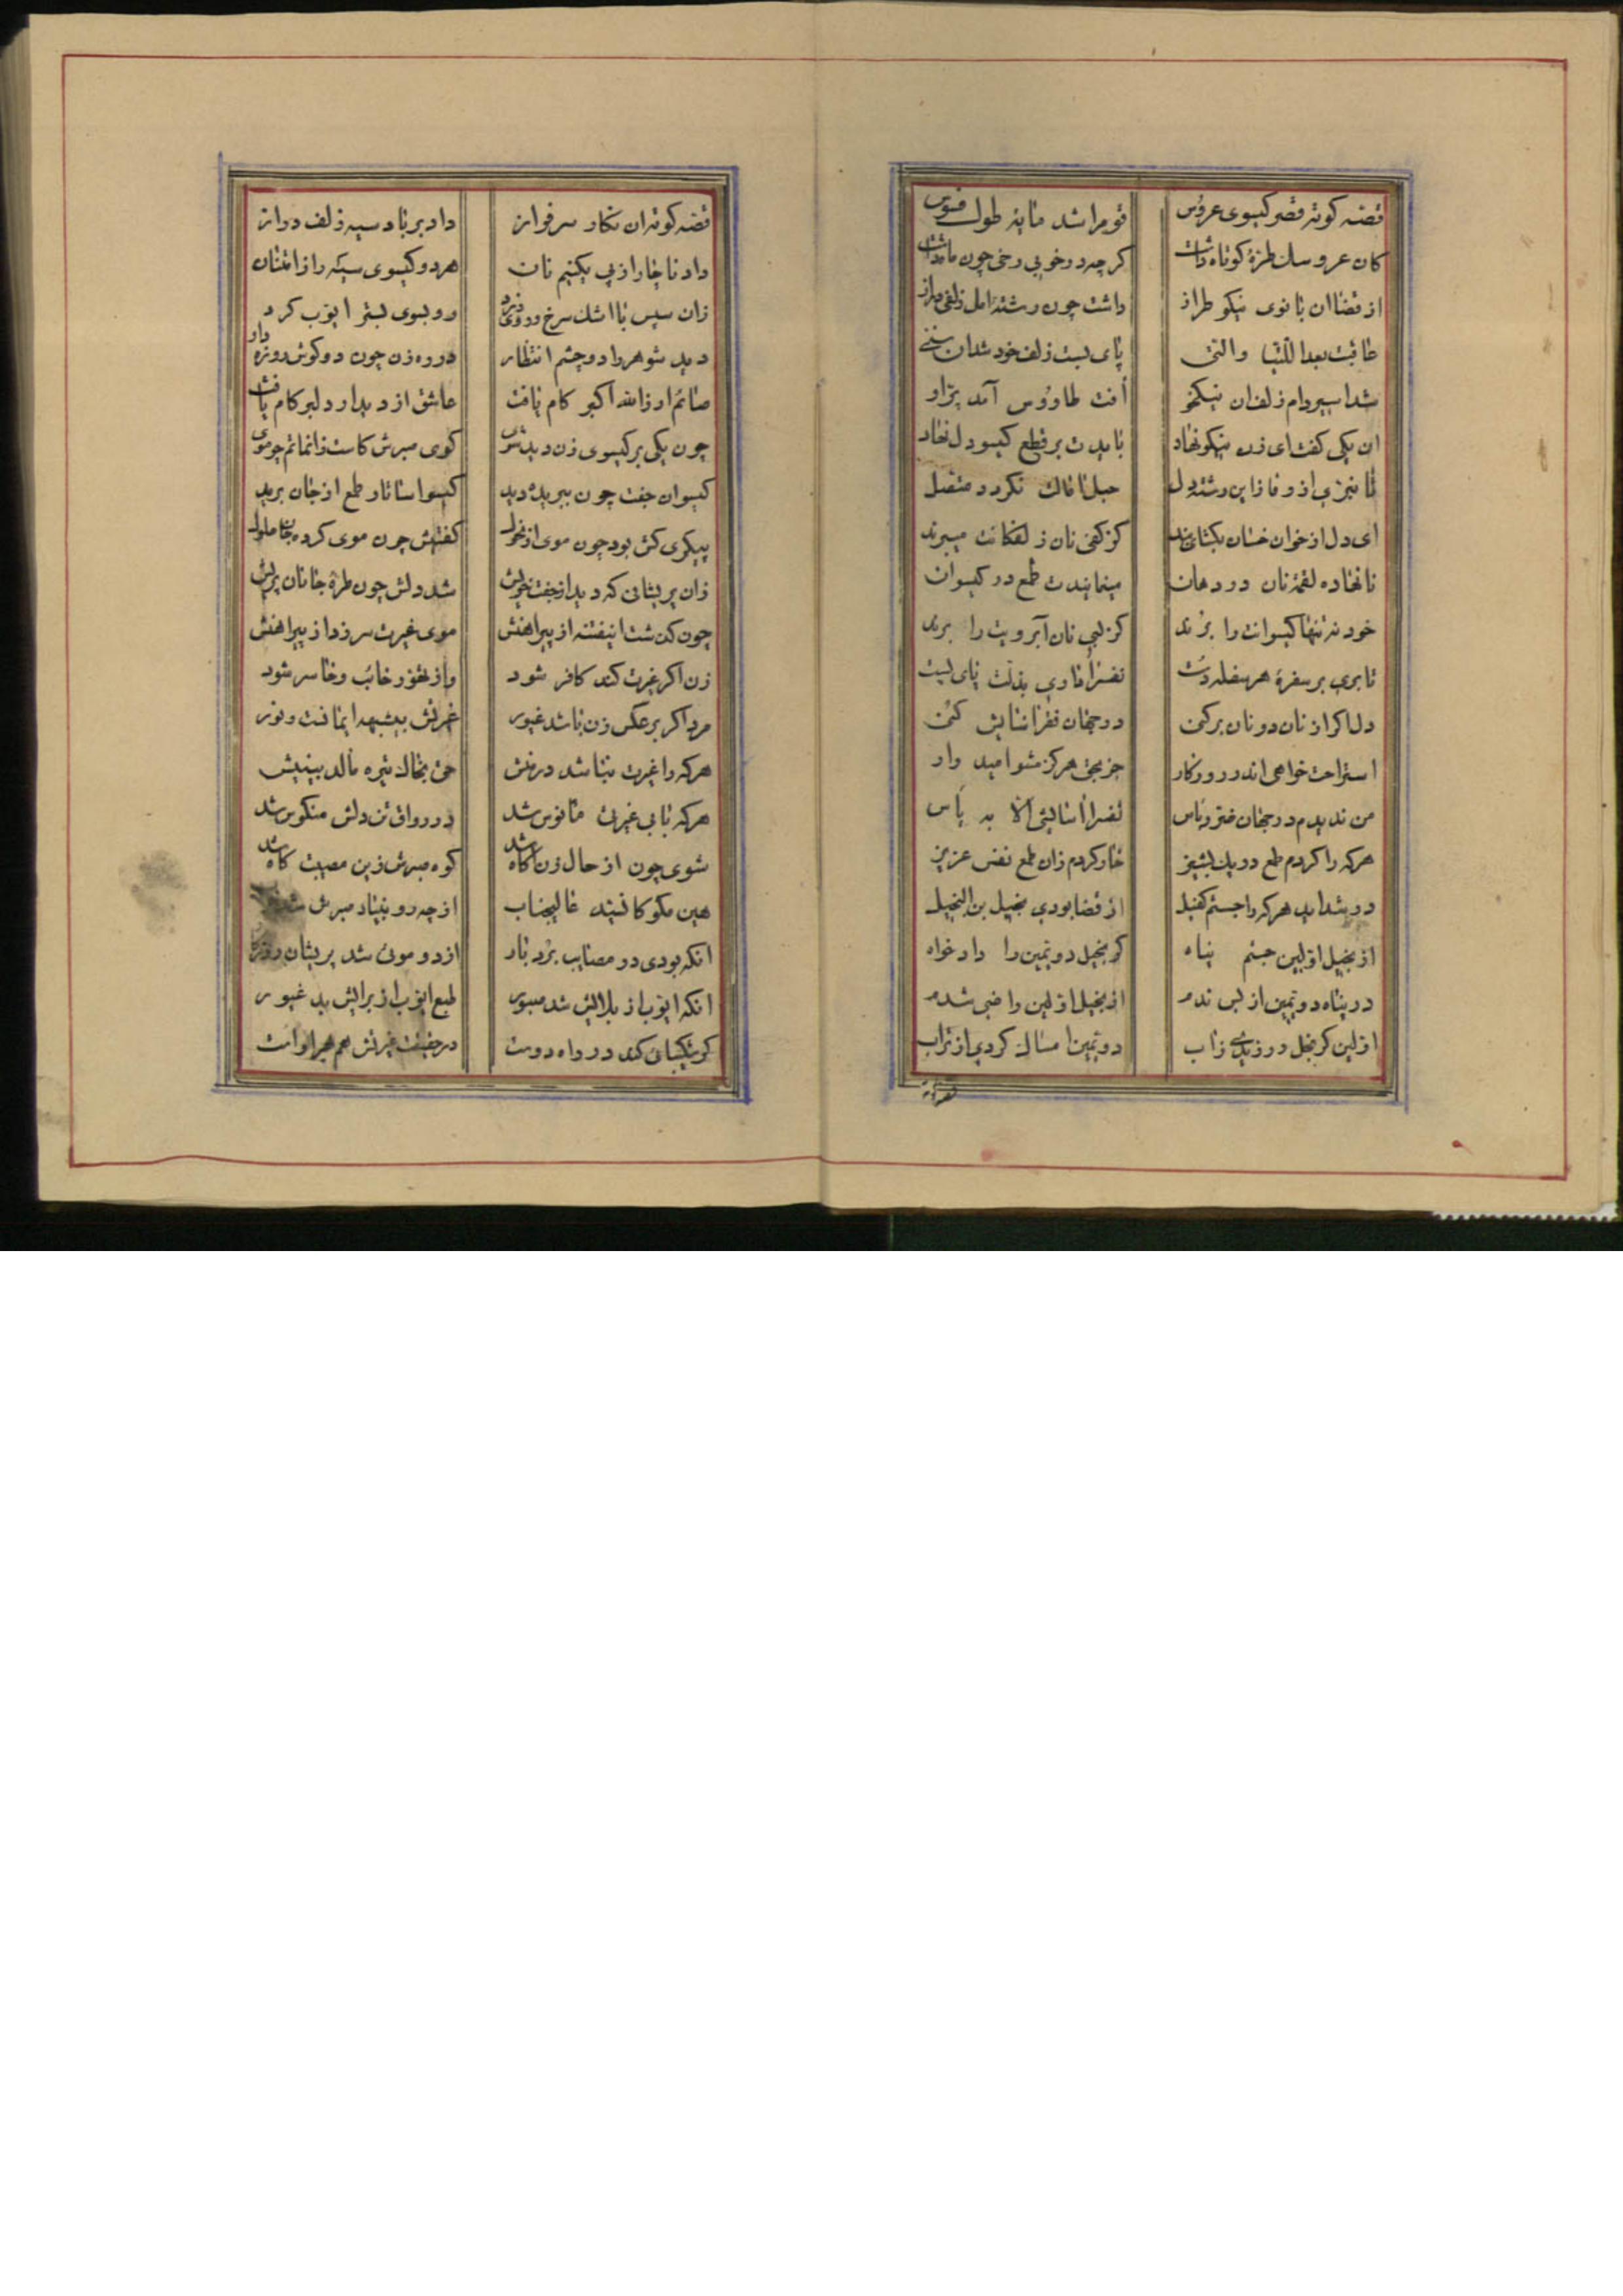 قصه کوته قصر کیسوی عروس قوم را شد مایه طول فسوس
کان عروسك طرهٔ کوتاه داشت کرچه در خوبی رخی چون ماه داشت
از قضا ان بانوی نیکو طراز داشت چون رشته امل زلفی دراز
عاقبت بعد اللتیا والتی پای بست زلف خود شد ان
شد اسیر دام زلف ان نیکخو افت طاوٌس آمد پرّ او
ان یکی کفت ای زن نیکو نهاد باید ت بر قطع کیسو دل نهاد
تا نبری از وفا زاین رشته دل حبل ما فالك نکردد متصل
ای دل از خوان خسان بکشای بند کز کفی نان زلفکانت میبرند
نانهاده لقمه نان در دهان مینمایندت طمع در کیسوان
خود نه تنها کیسوانت را برند کز لبی نان آبرویت را برند
تا بری بر سفرهٔ هر سفله دست نفس را داری بذلّت پای بست
دل اکر از نان دونان برکنی در جهان نفس اسایش کنی
استراحت خواهی اندر روزکار جز بحق هرکز مشو امید وار
من ندیدم در جهان فتر و یاس نفس را اسایشی الّا به یاس
هر که را کردم طمع در یك پشیز خار کردم زان طمع نفس عزیز
در شداید هر که را جستم کفیل از قضا بودی بخیل بن البخیل
از بخیل اوّلین جستم پناه کز بخیل دوّیمین را داد خواه
در پناه دوّیمین از بس ندم از بخیل اوّلین راضی شدم
اوّلین کر بخل ورزیدی ز اب دوّیمین امساك کردی از تراب
قصه کوته ان نکار سرفراز داد بر باد سیه زلف دراز
داد ناچار از پی یکنیم نان هر دو کیسوی سیه را ز امتنان
زان سپس با اشك سرخ و روی زرد رو بسوی بستر ایّوب کرد
دید شوهر را دو چشم انتظار در ره زن چون دو کوش روزه دار
صائم او ز الله اکبر کام یافت عاشق از دیدار دلبر کام یافت
چون یکی بر کیسوی زن دید شوی کوی صبرش کاست زان ماتم چو موی
کیسوان جفت چون ببریده دید کیسو اسا تار طمع از جان برید
پیکری کش بود چون موی از نحول کفتیش چون موی کرده جا ملول
زان پریشانی که دید از جفت خویش شد دلش چون طرهٔ جانان پریش
چون کذشت اینفتنه از پیراهنش موی غیرت سر زد از پیراهنش
زن اکر غیرت کند کافر شود و از تهوّر خائب و خاسر شود
مرد اکر بر عکس زن باشد غیور غیرتش بیشبهه ایمانست و نور
هر که را غیرت نباشد در منش حق بخاك تیره مالد بینیش
هر که با بی غیرتی مانوس شد در رواق تن دلش منکوس شد
شوی چون از حال زن آکاه شد کوه صبرش زین مصیبت کاه شد
هین مکو کانیند عالیجناب از چه رو بنیاد صبرش شد
انکه بودی در مصایب بردبار از دو موئی شد پریشان روزکار
انکه ایّوب از بلایش شد صبور طبع ایّوب از برایش بد غیور
کر شکیبائی کند در راه دوست در حقیقت غیرتش هم بهر اوست